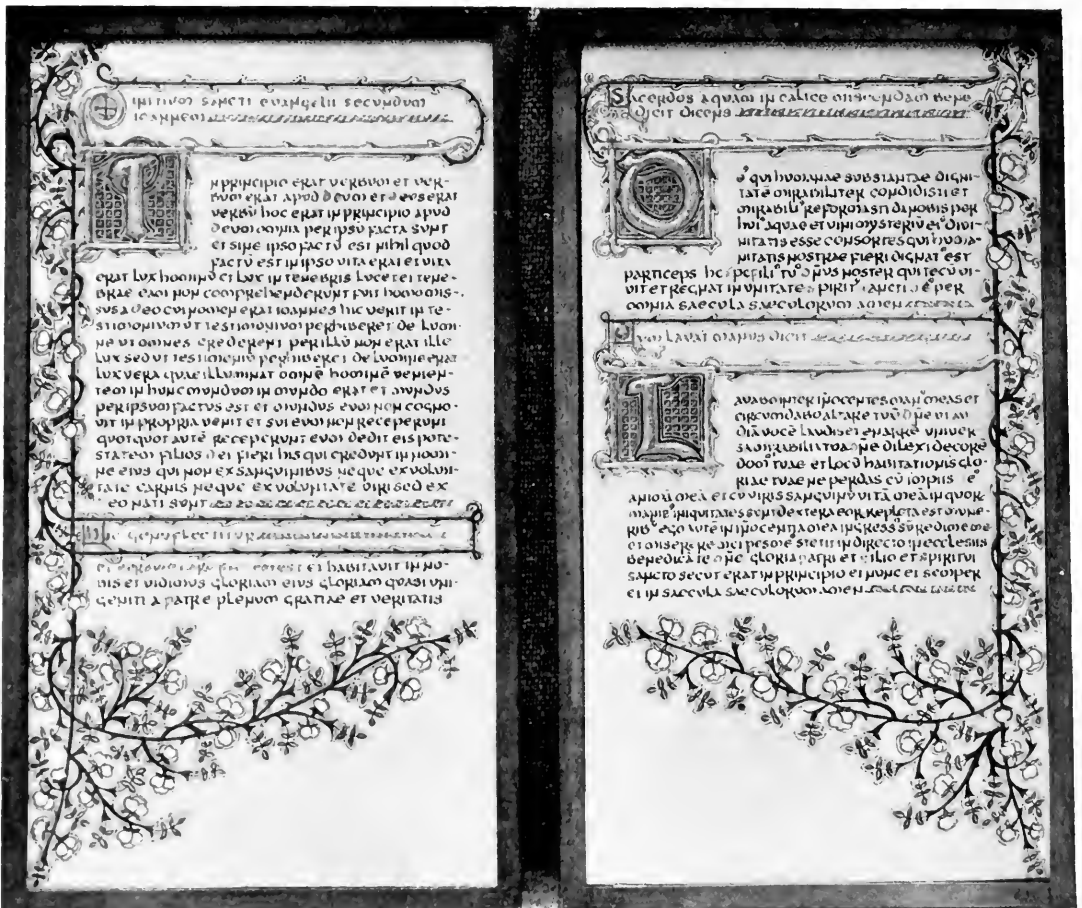 INITIUM SANCTI EVANGELII SECUNDUM
IOANNEM
IN PRINCIPIO ERAT VERBUM ET VER-
BUM ERAT APUD DEUM ET DEUS ERAT
VERBŪ HOC ERAT IN PRINCIPIO APUD
DEUM OMNIA PER IPSŪ FACTA SUNT
ET SINE IPSO FACTŪ EST NIHIL QUOD
FACTŪ EST IN IPSO VITA ERAT ET VITA
ERAT LUX HOMINŪ ET LUX IN TENEBRIS LUCET ET TENE-
BRAE EAM NON COMPREHENDERUNT FUIT HOMO MIS-
SUS A DEO CUI NOMEN ERAT IOANNES HIC VENIT IN TE-
STIMONIUM UT TESTIMONIUM PERHIBERET DE LUMI-
NE UT OMNES CREDERENT PER ILLŪ NON ERAT ILLE
LUX SED UT TESTIMONIŪ PERHIBERET DE LUMINE ERAT
LUX VERA QUAE ILLUMINAT OMNĒ HOMINĒ VENIEN-
TEM IN HUNC MUNDUM IN MUNDO ERAT ET MUNDUS
PER IPSUM FACTUS EST ET MUNDUS EUM NON COGNO-
VIT IN PROPRIA VENIT ET SUI EUM NON RECEPERUNT
QUOTQUOT AUTĒ RECEPERUNT EUM DEDIT EIS POTE-
STATEM FILIOS DEI FIERI HIS QUI CREDUNT IN NOMI-
NE EIUS QUI NON EX SANGUINIBUS NEQUE EX VOLUN-
TATE CARNIS NEQUE EX VOLUNTATE VIRI SED EX
EO NATI SUNT
GENUFLECTITUR
ET HABITAVIT IN NO-
BIS ET VIDIMUS GLORIAM EIUS GLORIAM QUASI UNI-
GENITI A PATRE PLENUM GRATIAE ET VERITATIS
SACERDOS AQUAM IN CALICE MISCENDAM BENE
DICIT DICENS
QUI HUMANAE SUBSTANTIAE DIGNI-
TATĒ MIRABILITER CONDIDISTI ET
MIRABILI REFORMASTI DA NOBIS PER
HUI AQUAE ET VINI MYSTERIŪ EI DIVI-
NITATIS ESSE CONSORTES QUI HUMA-
NITATIS NOSTRAE FIERI DIGNAT EST
PARTICEPS FILI TU NOSTER QUI TECŪ VI-
VIT ET REGNAT IN UNITATE SPIRIT SANCTI PER
OMNIA SAECULA SAECULORUM AMEN
LAVAT MANUS DICIT
LAVABO INTER INOCENTES MAN MEAS ET
CIRCUMDABO ALTARE TUŪ DNE UT AU
DIĀ VOCĒ LAUDIS ET ENARRĒ UNIVER
SA MIRABILIA TUA DNE DILEXI DECORĒ
DOM TUAE ET LOCŪ HABITATIONIS GLO-
RIAE TUAE NE PERDAS CŪ IMPIIS
ANIMĀ MEĀ ET CŪ VIRIS SANGUINŪ VITĀ MEĀ IN QUOR
MANIB INIQUITATES SUNT DEXTERA EOR REPLETA EST MUNE-
RIB EGO AUTĒ IN INOCENTIA MEA INGRESS SŪ REDIME ME
ET MISERERE MEI PES ME STETIT IN DIRECTO IN ECCLESIIS
BENEDICĀ TE DNE GLORIA PATRI ET FILIO ET SPIRITUI
SANCTO SECUT ERAT IN PRINCIPIO ET NUNC ET SEMPER
ET IN SAECULA SAECULORUM AMEN